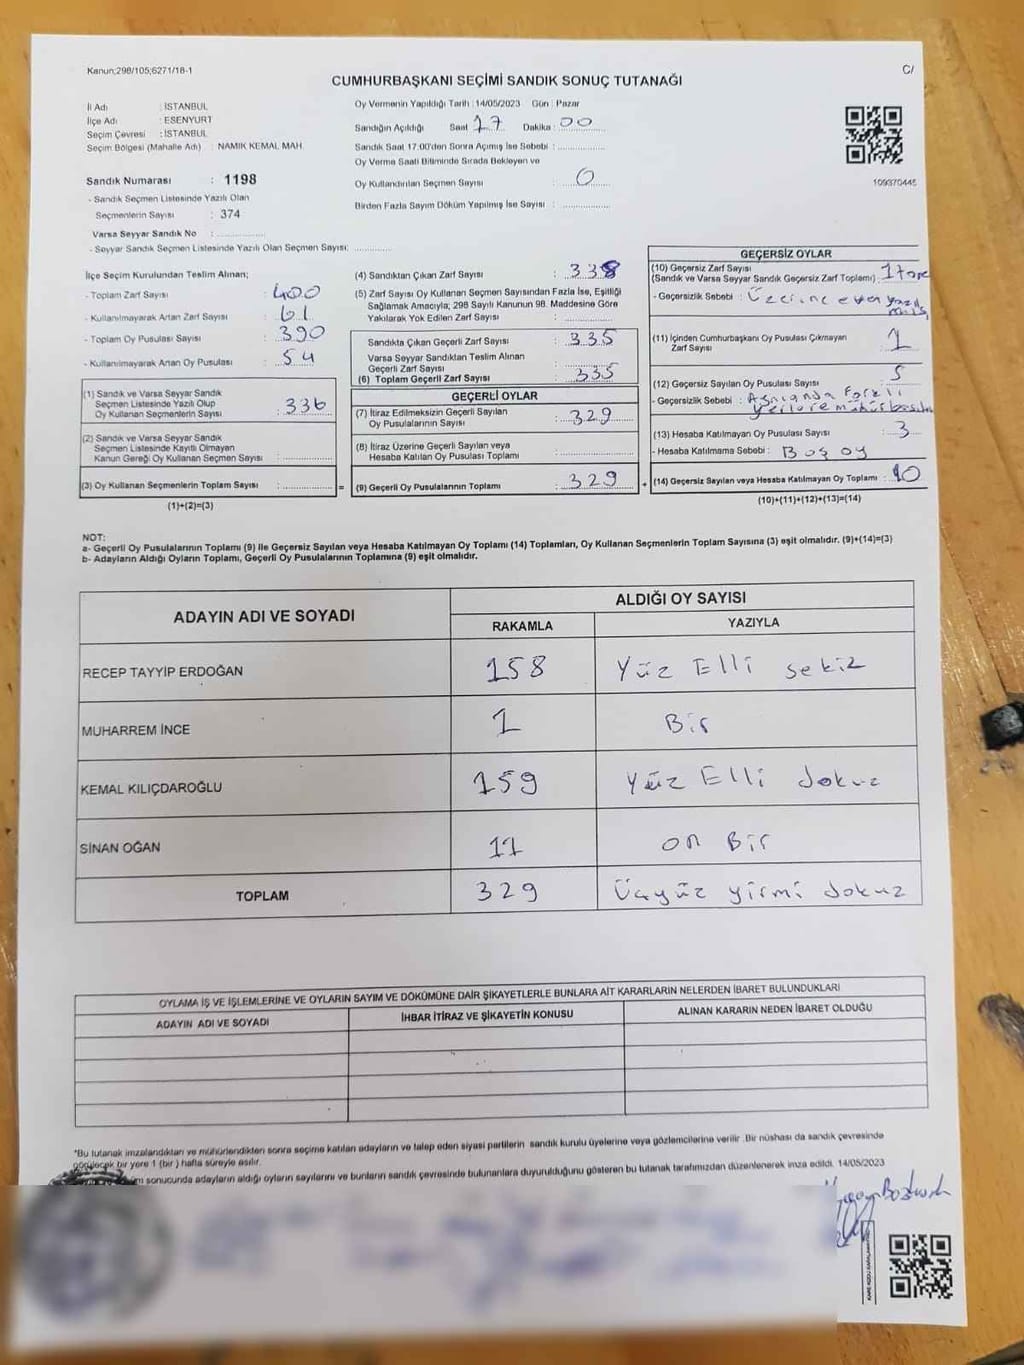 Kanun;298/105;6271/18-1
C/
CUMHURBAŞKANI SEÇİMİ SANDIK SONUÇ TUTANAĞI
İl Adı : İSTANBUL
İlçe Adı : ESENYURT
Seçim Çevresi : İSTANBUL
Seçim Bölgesi (Mahalle Adı) : NAMIK KEMAL MAH.
Sandık Numarası : 1198
- Sandık Seçmen Listesinde Yazılı Olan
Seçmenlerin Sayısı : 374
Varsa Seyyar Sandık No :
- Seyyar Sandık Seçmen Listesinde Yazılı Olan Seçmen Sayısı:
Oy Vermenin Yapıldığı Tarih : 14/05/2023 Gün : Pazar
Sandığın Açıldığı Saat 17 Dakika : 00
Sandık Saat 17:00'den Sonra Açımış İse Sebebi :
Oy Verme Saati Bitiminde Sırada Bekleyen ve
Oy Kullandırılan Seçmen Sayısı : 0
Birden Fazla Sayım Döküm Yapılmış İse Sayısı :
109370445
İlçe Seçim Kurulundan Teslim Alınan;
- Toplam Zarf Sayısı : 400
- Kullanılmayarak Artan Zarf Sayısı : 61
- Toplam Oy Pusulası Sayısı : 390
- Kullanılmayarak Artan Oy Pusulası : 54
(1) Sandık ve Varsa Seyyar Sandık
Seçmen Listesinde Yazılı Olup
Oy Kullanan Seçmenlerin Sayısı : 336
(2) Sandık ve Varsa Seyyar Sandık
Seçmen Listesinde Kayıtlı Olmayan
Kanun Gereği Oy Kullanan Seçmen Sayısı :
(3) Oy Kullanan Seçmenlerin Toplam Sayısı : =
(1)+(2)=(3)
(4) Sandıktan Çıkan Zarf Sayısı : 338
(5) Zarf Sayısı Oy Kullanan Seçmen Sayısından Fazla İse, Eşitliği
Sağlamak Amacıyla, 298 Sayılı Kanunun 98. Maddesine Göre
Yakılarak Yok Edilen Zarf Sayısı :
Sandıkta Çıkan Geçerli Zarf Sayısı : 335
Varsa Seyyar Sandıktan Teslim Alınan
Geçerli Zarf Sayısı :
(6) Toplam Geçerli Zarf Sayısı : 335
GEÇERLİ OYLAR
(7) İtiraz Edilmeksizin Geçerli Sayılan
Oy Pusulalarının Sayısı : 329
(8) İtiraz Üzerine Geçerli Sayılan veya
Hesaba Katılan Oy Pusulası Toplamı :
(9) Geçerli Oy Pusulalarının Toplamı : 329 +
GEÇERSİZ OYLAR
(10) Geçersiz Zarf Sayısı
(Sandık ve Varsa Seyyar Sandık Geçersiz Zarf Toplamı) : 1 tane
- Geçersizlik Sebebi : Üzerine
(11) İçinden Cumhurbaşkanı Oy Pusulası Çıkmayan
Zarf Sayısı : 1
(12) Geçersiz Sayılan Oy Pusulası Sayısı : 5
- Geçersizlik Sebebi : Farklı
yerlere mühür
(13) Hesaba Katılmayan Oy Pusulası Sayısı : 3
- Hesaba Katılmama Sebebi : Boş oy
(14) Geçersiz Sayılan veya Hesaba Katılmayan Oy Toplamı : 10
(10)+(11)+(12)+(13)=(14)
NOT:
a- Geçerli Oy Pusulalarının Toplamı (9) ile Geçersiz Sayılan veya Hesaba Katılmayan Oy Toplamı (14) Toplamları, Oy Kullanan Seçmenlerin Toplam Sayısına (3) eşit olmalıdır. (9)+(14)=(3)
b- Adayların Aldığı Oyların Toplamı, Geçerli Oy Pusulalarının Toplamına (9) eşit olmalıdır.
ADAYIN ADI VE SOYADI ALDIĞI OY SAYISI
RAKAMLA YAZIYLA
RECEP TAYYİP ERDOĞAN 158 Yüz Elli sekiz
MUHARREM İNCE 1 Bir
KEMAL KILIÇDAROĞLU 159 Yüz Elli dokuz
SİNAN OĞAN 11 on Bir
TOPLAM 329 Üçyüz yirmi dokuz
OYLAMA İŞ VE İŞLEMLERİNE VE OYLARIN SAYIM VE DÖKÜMÜNE DAİR ŞİKAYETLERLE BUNLARA AİT KARARLARIN NELERDEN İBARET BULUNDUKLARI
ADAYIN ADI VE SOYADI İHBAR İTİRAZ VE ŞİKAYETİN KONUSU ALINAN KARARIN NEDEN İBARET OLDUĞU
*Bu tutanak imzalandıktan ve mühürlendikten sonra seçime katılan adayların ve talep eden siyasi partilerin sandık kurulu üyelerine veya gözlemcilerine verilir. Bir nüshası da sandık çevresinde
görülecek bir yere 1 (bir ) hafta süreyle asılır.
sonucunda adayların aldığı oyların sayılarını ve bunların sandık çevresinde bulunanlara duyurulduğunu gösteren bu tutanak tarafımızdan düzenlenerek imza edildi. 14/05/2023